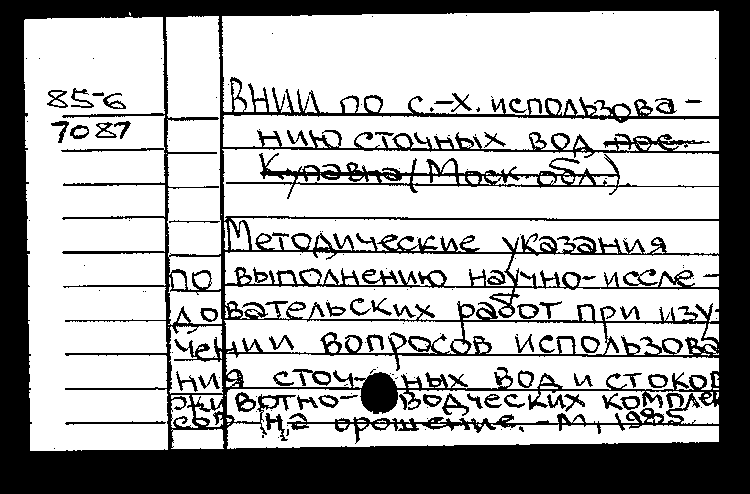 85-6
7087
ВНИИ по с.-х. использова-
нию сточных вод пос.
Купавна (Моск обл.)
Методические указания
по выполнению научно-иссле-
довательских работ при изу-
чении вопросов использова
ния сточ-ных вод и стоков
живот­но-водческих комплек
сов (на орошение. - М, 1985